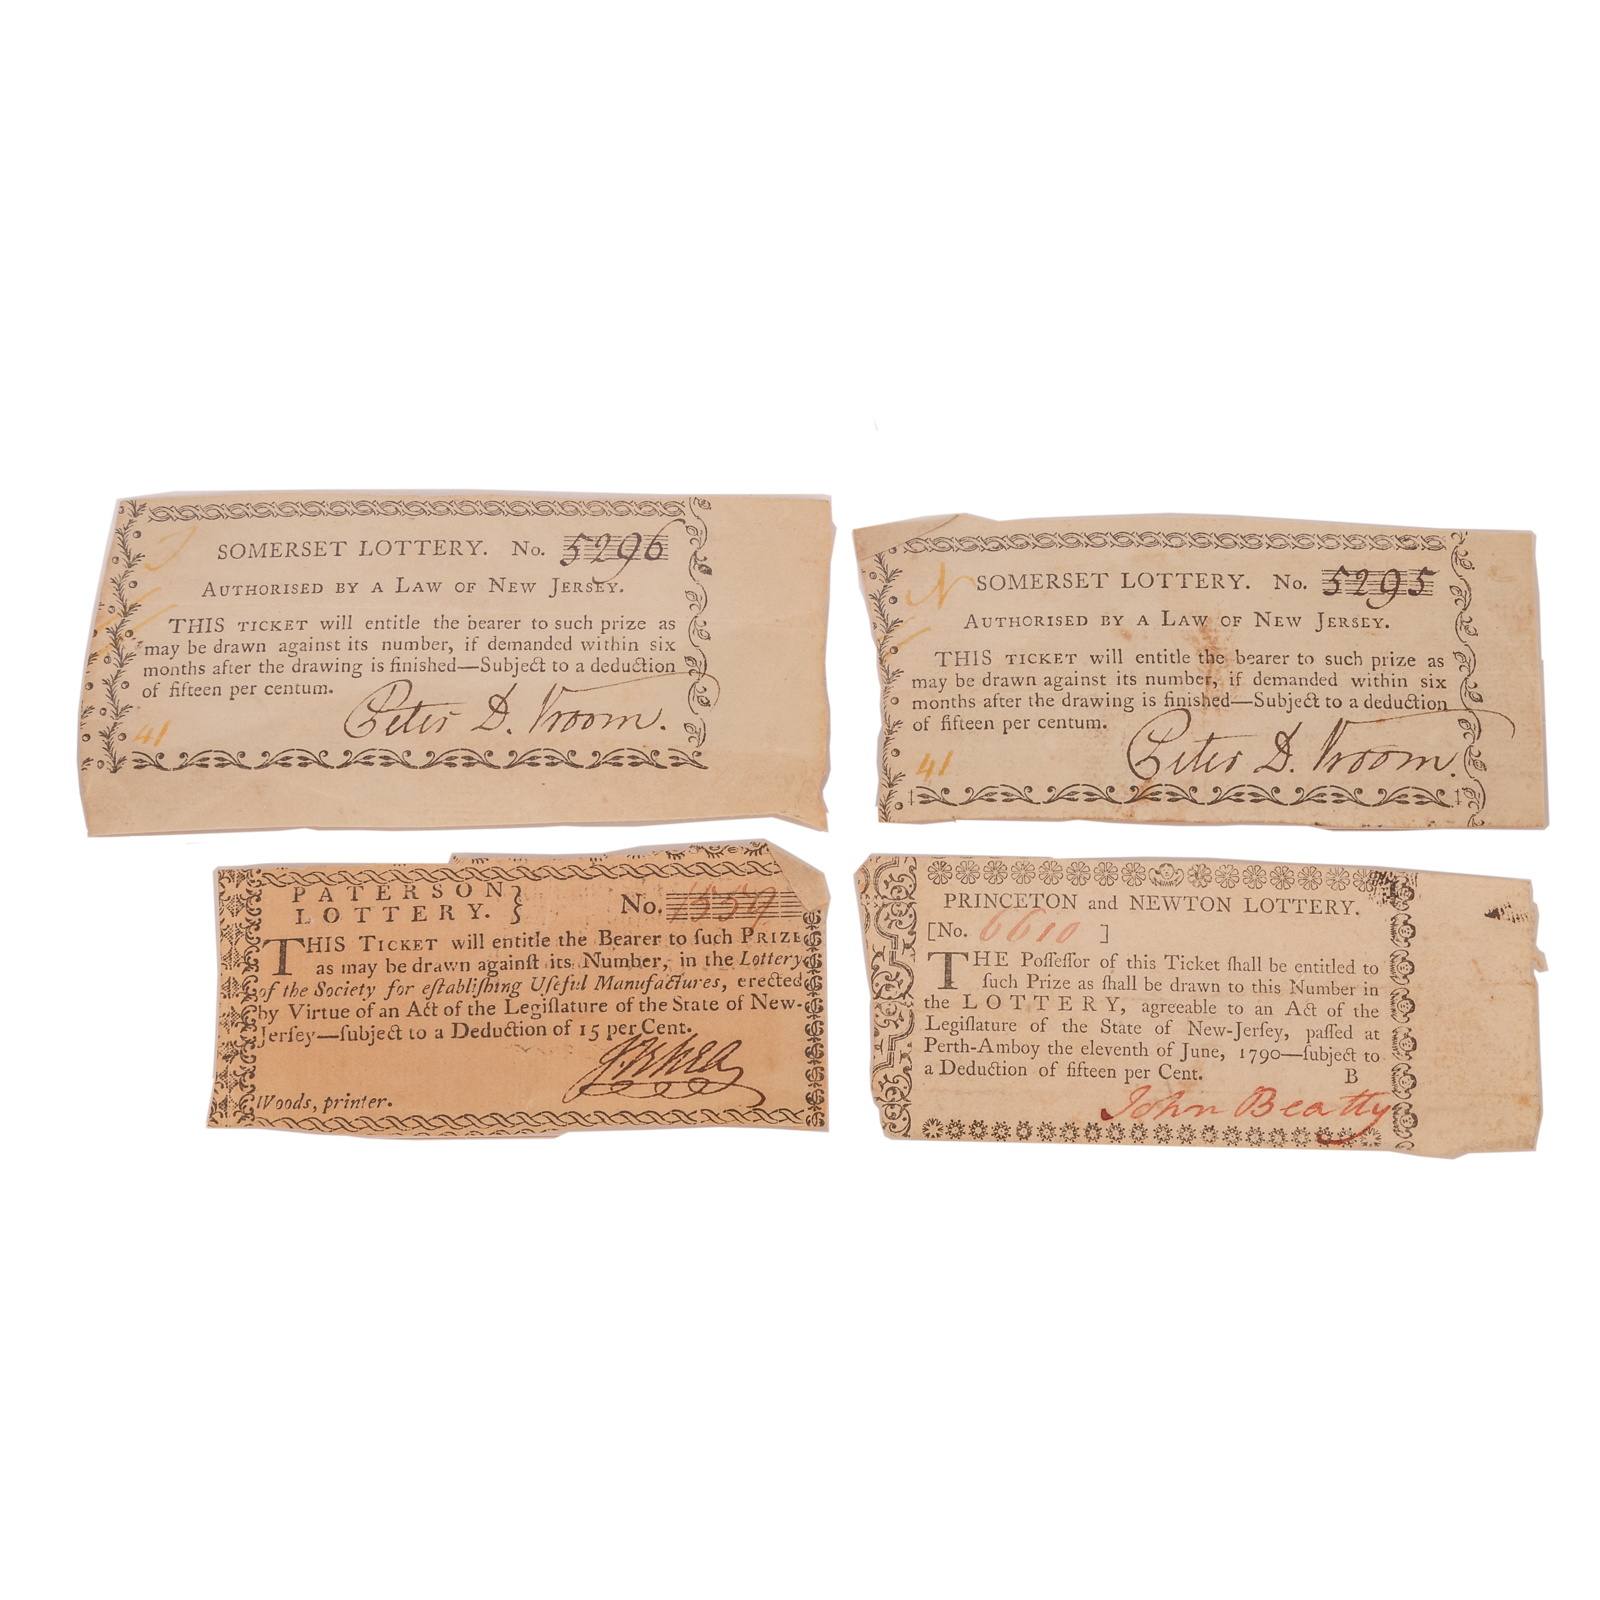 SOMERSET LOTTERY. No. 5296
AUTHORISED BY A LAW OF NEW JERSEY.
THIS TICKET will entitle the bearer to such prize as
may be drawn against its number, if demanded within six
months after the drawing is finished—Subject to a deduction
of fifteen per centum.
Peter D. Vroom.
41
N SOMERSET LOTTERY. No. 5295
AUTHORISED BY A LAW OF NEW JERSEY.
THIS TICKET will entitle the bearer to such prize as
may be drawn against its number, if demanded within six
months after the drawing is finished—Subject to a deduction
of fifteen per centum.
Peter D. Vroom.
41
PATERSON
LOTTERY. No. 1559
THIS TICKET will entitle the Bearer to ſuch PRIZE
as may be drawn againſt its Number, in the Lottery
of the Society for eſtabliſhing Uſeful Manufactures, erected
by Virtue of an Act of the Legiſlature of the State of New-
Jerſey—ſubject to a Deduction of 15 per Cent.
Woods, printer.
PRINCETON and NEWTON LOTTERY.
[No. 6610 ]
THE Poſſeſſor of this Ticket ſhall be entitled to
ſuch Prize as ſhall be drawn to this Number in
the LOTTERY, agreeable to an Act of the
Legiſlature of the State of New-Jerſey, paſſed at
Perth-Amboy the eleventh of June, 1790—ſubject to
a Deduction of fifteen per Cent. B
John Beatty